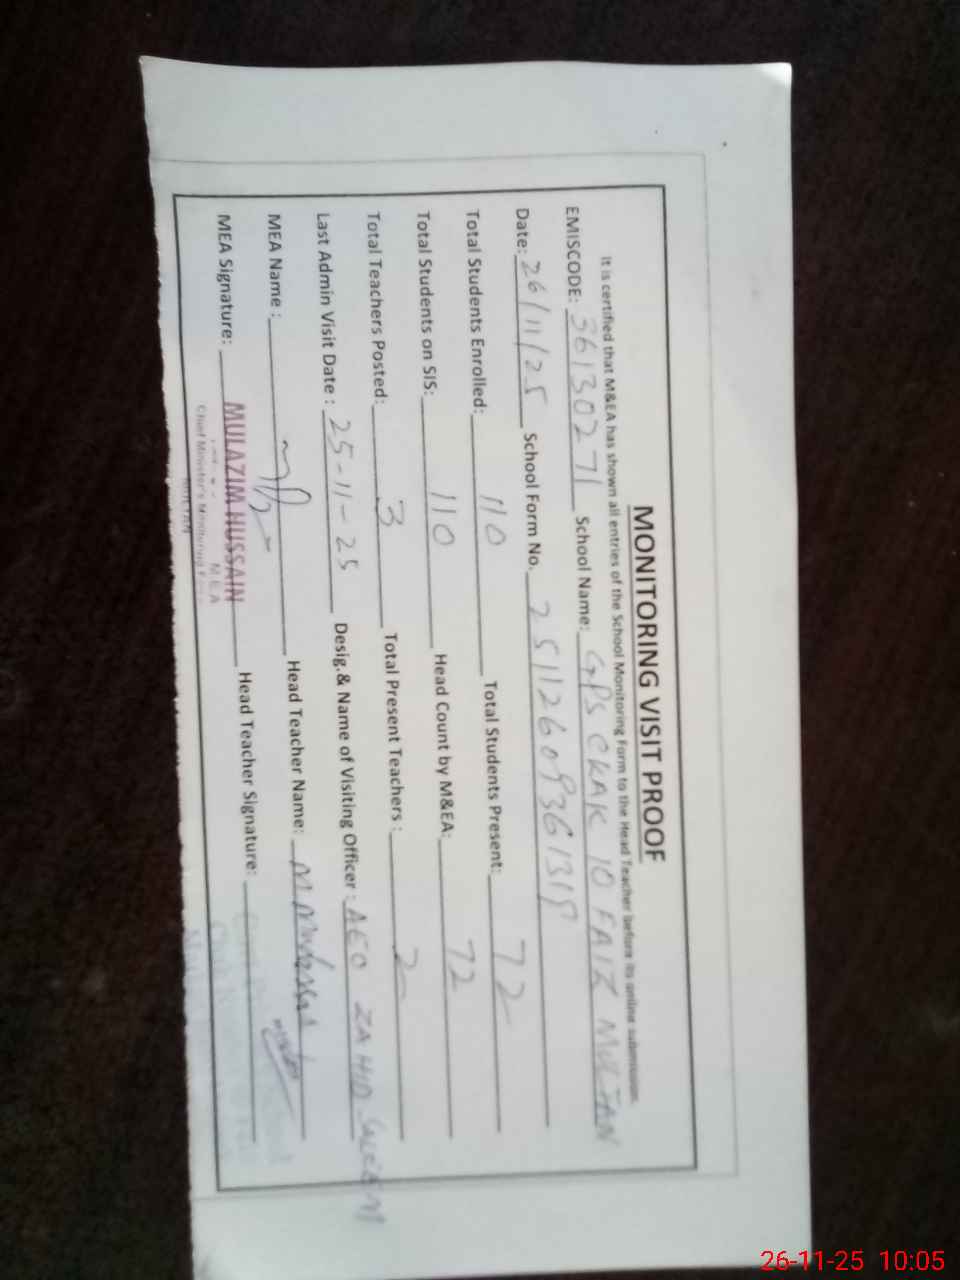 MONITORING VISIT PROOF
It is certified that M&EA has shown all entries of the School Monitoring Form to the Head Teacher before its online submission.
EMISCODE: 36130271 School Name: GPS CKAK 10 FAIZ MULTAN
Date: 26/11/25 School Form No. 2511260936131
Total Students Enrolled: 110 Total Students Present: 72
Total Students on SIS: 110 Head Count by M&EA: 72
Total Teachers Posted: 3 Total Present Teachers: 2
Last Admin Visit Date : 25-11-25 Desig.& Name of Visiting Officer : AEO ZAHID SALEEM
MEA Name : Head Teacher Name: M
MEA Signature: MULAZIM HUSSAIN Head Teacher Signature:
M.E.A
Chief Minister's Monitoring Force
MULTAN
26-11-25 10:05